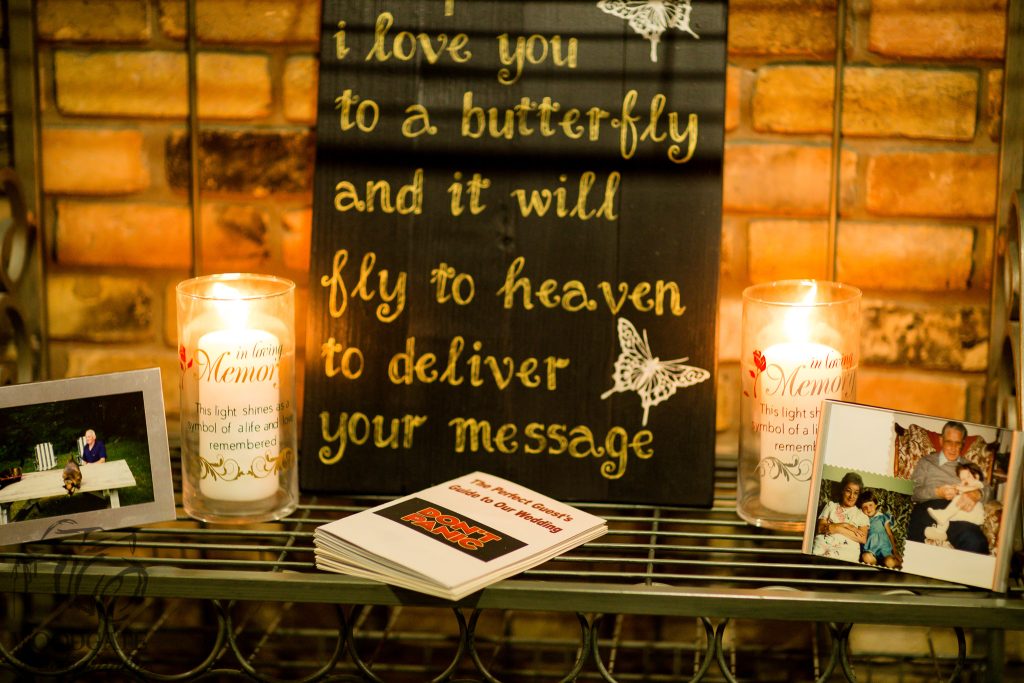 i love you
to a butterfly
and it will
fly to heaven
to deliver
your message
in loving
Memory
This light shines as a
symbol of a life and love
remembered
in loving
Memory
This light shines
symbol of a life
remembered
The Perfect Guest's
Guide to Our Wedding
DON'T
PANIC